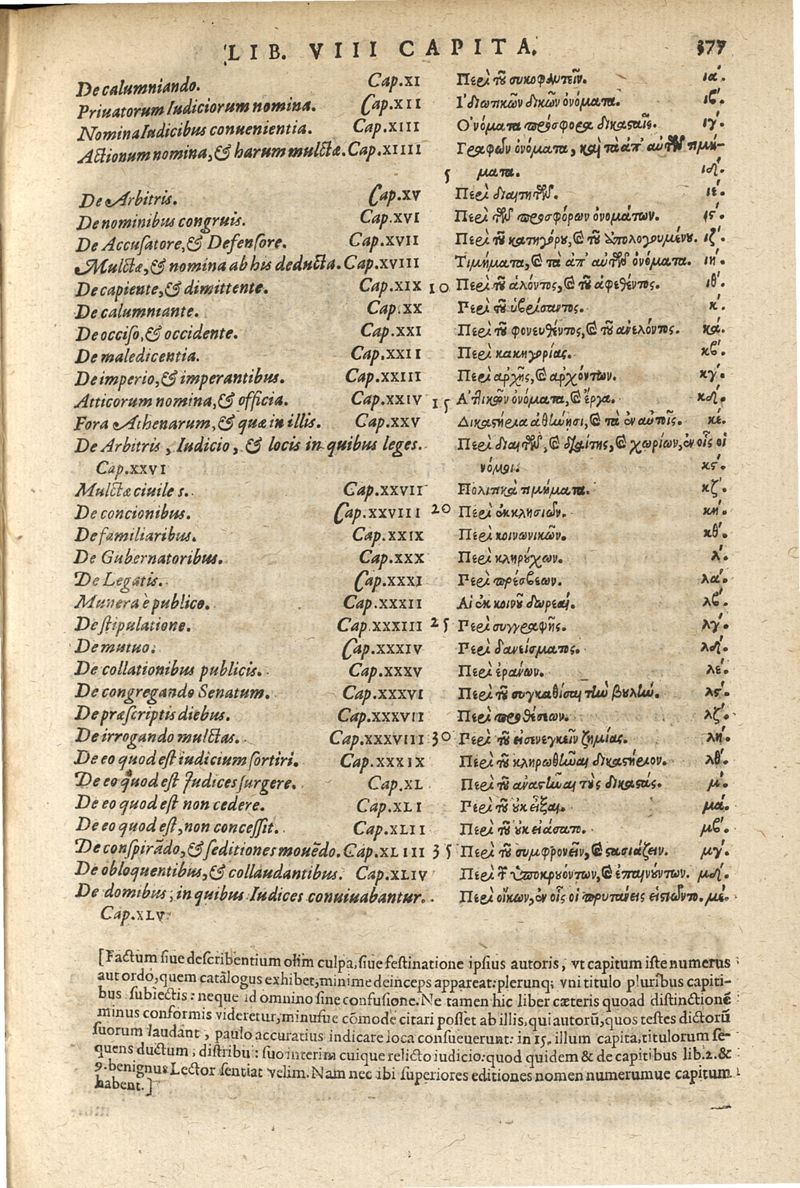 LIB. VIII CAPITA. 377
De calumniando. Cap.XI Περὶ τοῦ συκοφαντεῖν. ια΄.
Priuatorum Iudiciorum nomina. Cap.XII Ἰδιωτικῶν δικῶν ὀνόματα. ιβ΄.
Nomina Iudicibus conuenientia. Cap.XIII Ὀνόματα πρόσφορα δικασταῖς. ιγ΄.
Actionum nomina, & harum multæ. Cap.XIIII Γραφῶν ὀνόματα, καὶ τὰ ἀπ' αὐτῶν τιμή-
5 ματα. ιδ΄.
De Arbitris. Cap.XV Περὶ διαιτητῶν. ιε΄.
De nominibus congruis. Cap.XVI Περὶ τῶν προσφόρων ὀνομάτων. ις΄.
De Accusatore, & Defensore. Cap.XVII Περὶ τοῦ κατηγόρου, καὶ τοῦ ἀπολογουμένου. ιζ΄.
Multæ, & nomina ab his deducta. Cap.XVIII Τιμήματα, καὶ τὰ ἀπ' αὐτῶν ὀνόματα. ιη΄.
De capiente, & dimittente. Cap.XIX 10 Περὶ τοῦ ἁλόντος, καὶ τοῦ ἀφεθέντος. ιθ΄.
De calumniante. Cap.XX Περὶ τοῦ ὑβρίσαντος. κ΄.
De occiso, & occidente. Cap.XXI Περὶ τοῦ φονευθέντος, καὶ τοῦ ἀνελόντος. κα΄.
De maledicentia. Cap.XXII Περὶ κακηγορίας. κβ΄.
De imperio, & imperantibus. Cap.XXIII Περὶ ἀρχῆς, καὶ ἀρχόντων. κγ΄.
Atticorum nomina, & officia. Cap.XXIV 15 Ἀττικῶν ὀνόματα, καὶ ἔργα. κδ΄.
Fora Athenarum, & quæ in illis. Cap.XXV Δικαστήρια ἀθήνησι, καὶ τὰ ἐν αὐτοῖς. κέ.
De Arbitris, Iudicio, & locis in quibus leges. Περὶ διαιτητῶν, καὶ διαίτης, καὶ χωρίων, ἐν οἷς οἱ
Cap.XXVI νόμοι. κς΄.
Multæ ciuiles. Cap.XXVII Πολιτικὰ τιμήματα. κζ΄.
De concionibus. Cap.XXVIII 20 Περὶ ἐκκλησιῶν. κη΄.
De familiaribus. Cap.XXIX Περὶ κοινωνικῶν. κθ΄.
De Gubernatoribus. Cap.XXX Περὶ κληρούχων. λ΄.
De Legatis. Cap.XXXI Περὶ πρέσβεων. λα΄.
Munera è publico. Cap.XXXII Αἱ ἐκ κοινοῦ δωρεαί. λβ΄.
De stipulatione. Cap.XXXIII 25 Περὶ συγγραφῆς. λγ΄.
De mutuo. Cap.XXXIV Περὶ δανείσματος. λδ΄.
De collationibus publicis. Cap.XXXV Περὶ ἐράνων. λε΄.
De congregando Senatum. Cap.XXXVI Περὶ τοῦ συγκαθίσαι τὴν βουλὴν. λς΄.
De præscriptis diebus. Cap.XXXVII Περὶ προθέσεων. λζ΄.
De irrogando multas. Cap.XXXVIII 30 Περὶ τοῦ εἰσενεγκεῖν ζημίας. λη΄.
De eo quod est iudicium sortiri. Cap.XXXIX Περὶ τοῦ κληρωθῆναι δικαστήριον. λθ΄.
De eo quod est Judices surgere. Cap.XL Περὶ τοῦ ἀναστῆναι τοὺς δικαστάς. μ΄.
De eo quod est non cedere. Cap.XLI Περὶ τοῦ οὐκ εἶξαι. μα΄.
De eo quod est, non concessit. Cap.XLII Περὶ τοῦ οὐκ εἰάσατο. μβ΄.
De conspirādo, & seditiones mouēdo. Cap.XLIII 35 Περὶ τοῦ συμφρονεῖν, καὶ στασιάζειν. μγ΄.
De obloquentibus, & collaudantibus. Cap.XLIV Περὶ τῶν ὑποκρουόντων, καὶ ἐπαινούντων. μδ΄.
De domibus, in quibus Iudices conuiuabantur. Περὶ οἴκων, ἐν οἷς οἱ πρυτάνεις εἱστιῶντο. με΄.
Cap.XLV.
[Factum siue describentium olim culpa, siue festinatione ipsius autoris, vt capitum iste numerus
aut ordo, quem catalogus exhibet, minime deinceps appareat: plerunq; vni titulo pluribus capiti-
bus subiectis: neque id omnino sine confusione. Ne tamen hic liber cæteris quoad distinctionē
minus conformis videretur, minusue cōmode citari posset ab illis, qui autorū, quos testes dictorū
suorum laudant, paulo accuratius indicare loca consueuerunt: in 15. illum capita, titulorum se-
quens ductum, distribui: suo interim cuique relicto iudicio: quod quidem & de capitibus lib.2. &
9. benignus Lector sentiat velim. Nam nec ibi superiores editiones nomen numerumue capitum
habent.]